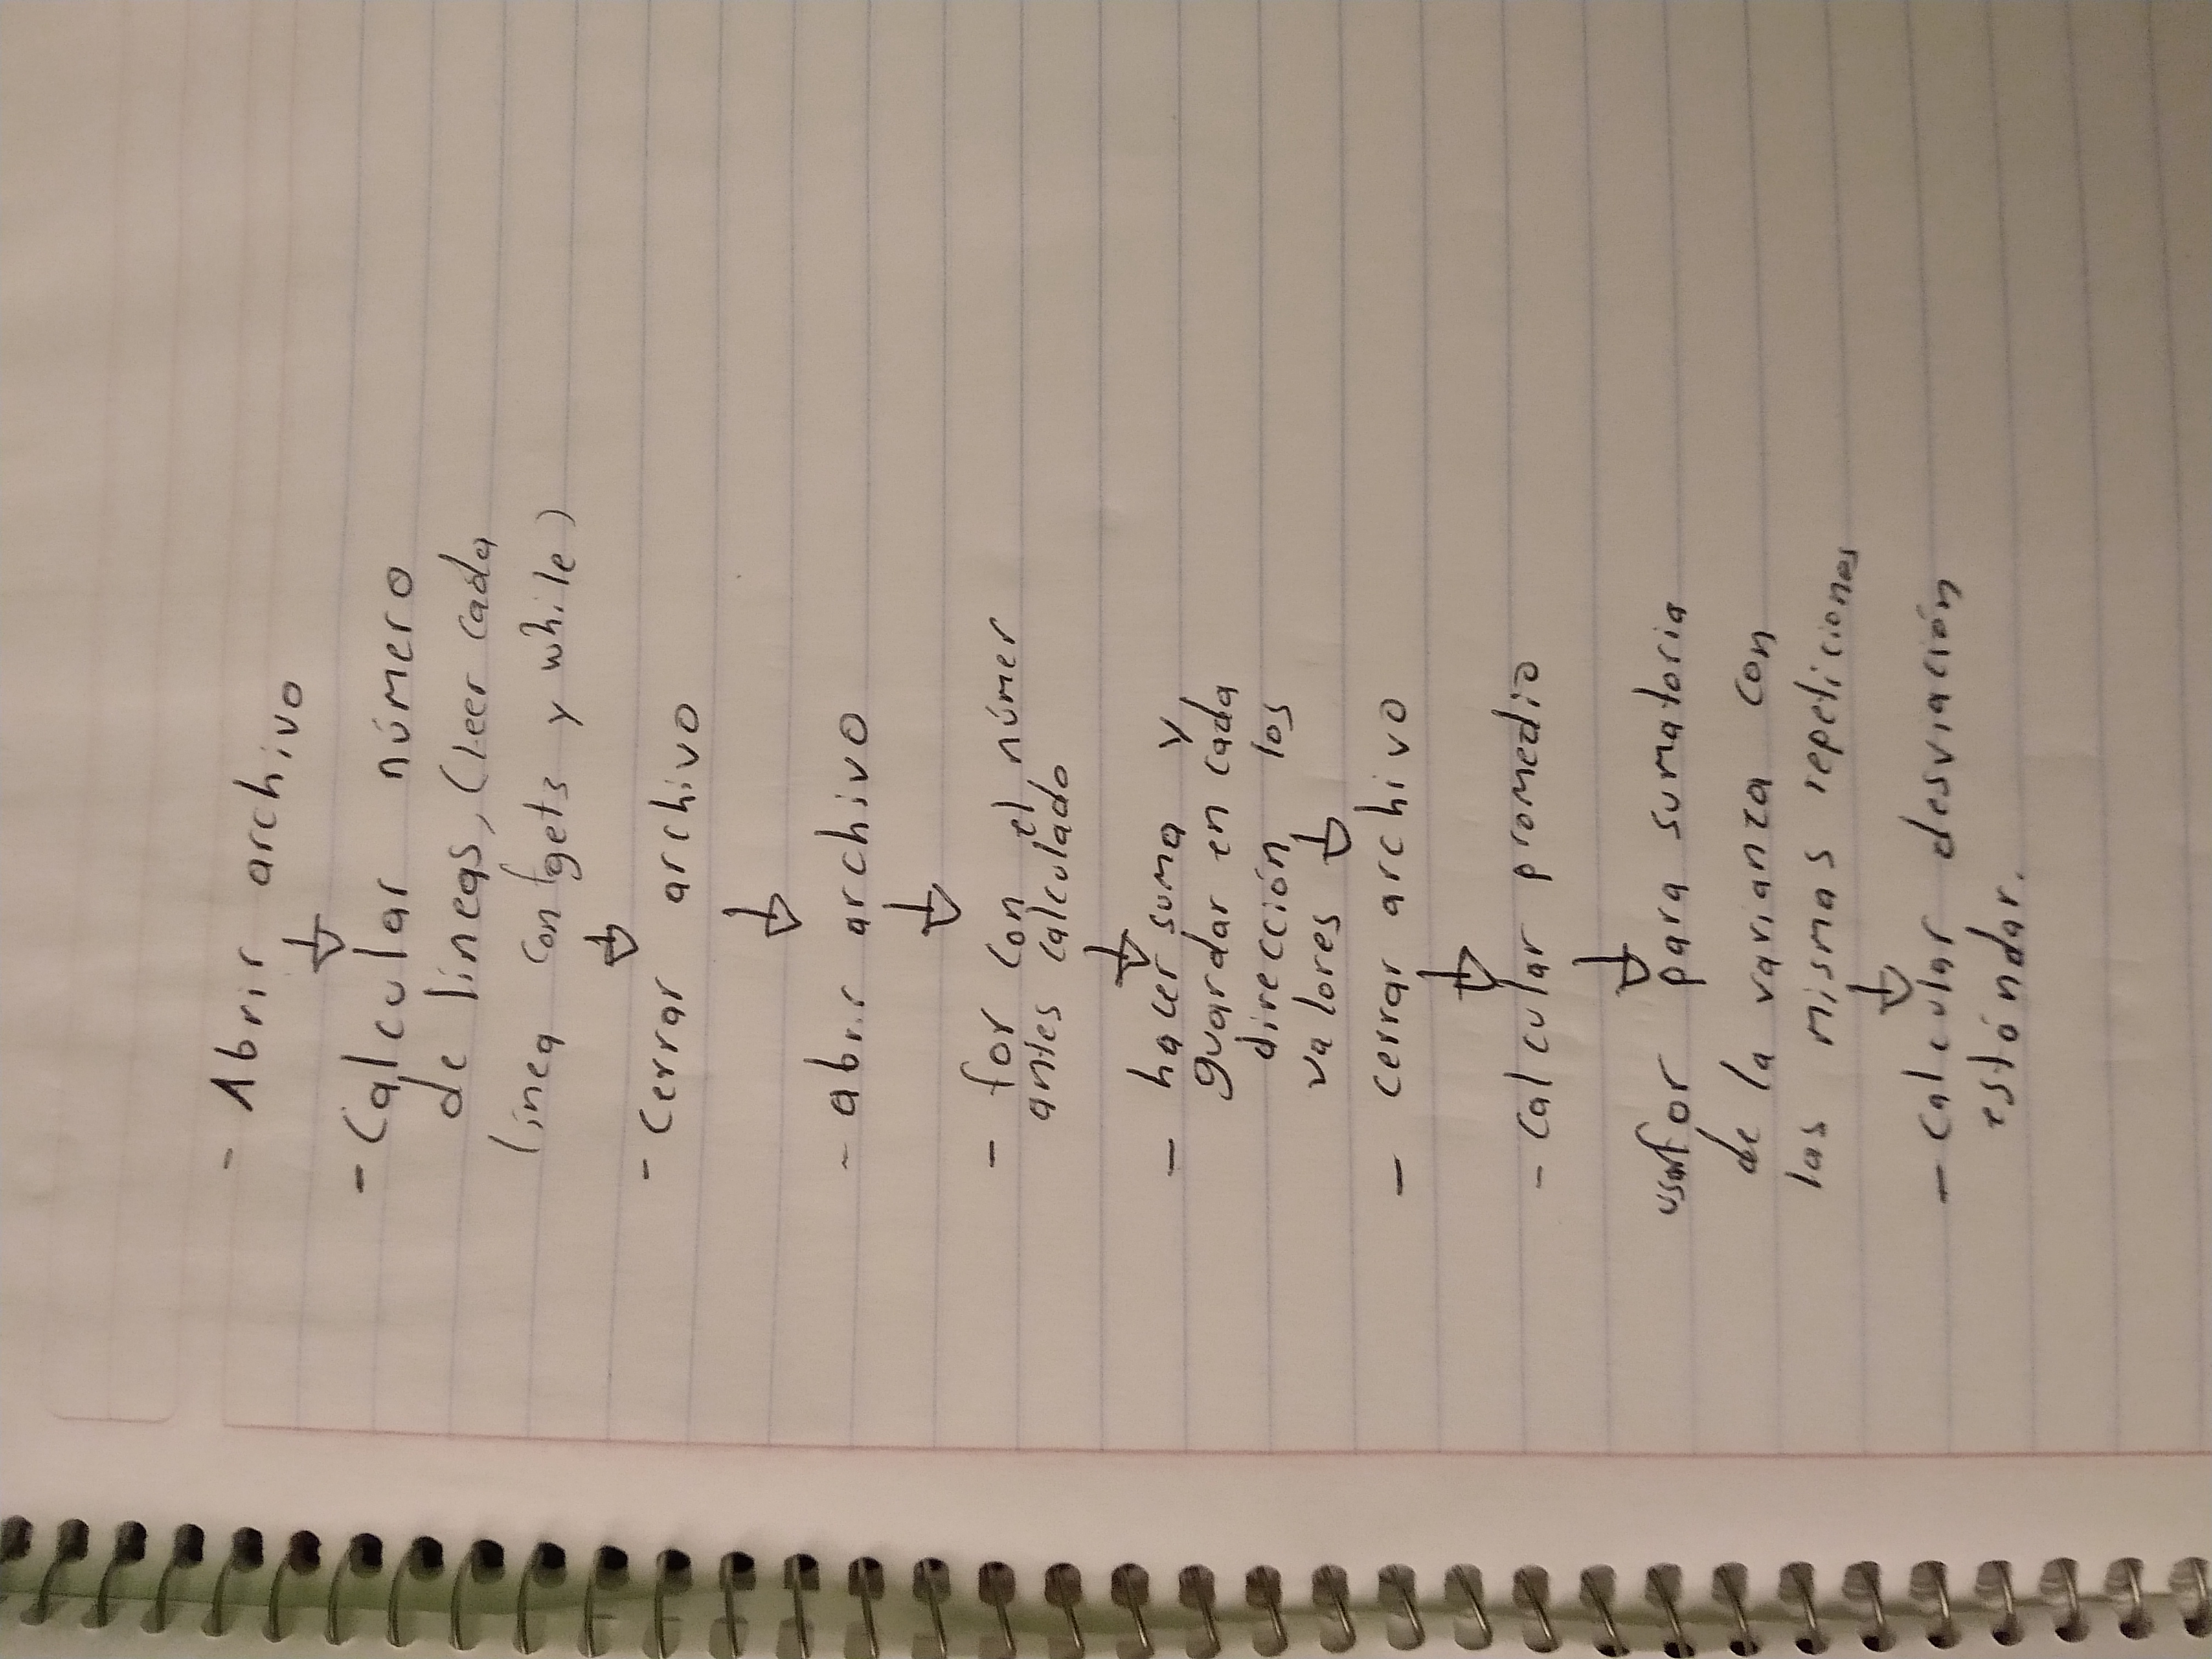 - Abrir archivo
- Calcular número
de lineas, (leer cada
línea con fgets y while)
- cerrar archivo
- abrir archivo
- for con el númer
antes calculado
- hacer suma y
guardar en cada
dirección los
valores
- cerrar archivo
- calcular promedio
usar for para sumatoria
de la varianza con
las mismas repeticiones
- calcular desviación
estándar.